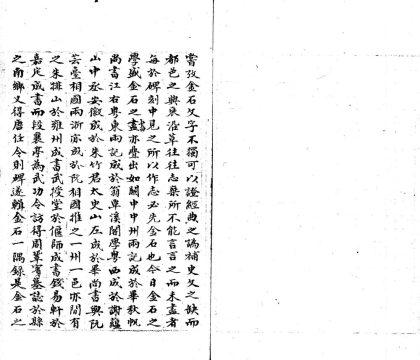 嘗攷金石文字不獨可以證經典之譌補史文之缺而
都邑之興衰沿革往往志椉所不能言言之而未盡者
每於碑刻中見之所以作志必先金石也今日金石之
學盛金石之書亦疊出如關中中州兩記成於畢秋帆
尚書江右粤東兩記成於翁覃溪閣學粤西成於謝蘊
山中丞安徽成於朱竹君太史山左成於畢尚書與阮
芸臺相國兩浙亦成於阮相國推之一州一邑亦閒有
之朱排山於雍州成書武授堂於偃師成書錢易軒於
嘉定成書而段襄亭為武功令訪得周㽦賓墓誌於縣
之南鄉又得唐任令則碑遂輯金石一隅錄是金石之